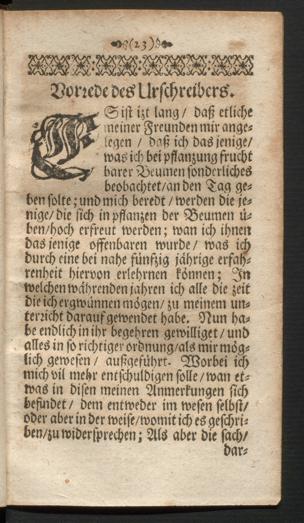 (23)
Vorrede des Urschreibers.
ES ist izt lang / daß etliche
meiner Freunden mir ange-
legen / daß ich das jenige /
was ich bei pflanzung frucht
barer Beumen sonderliches
beobachtet / an den Tag ge-
ben solte; und mich beredt / werden die je-
nige / die sich in pflanzen der Beumen ü-
ben / hoch erfreut werden; wan ich ihnen
das jenige offenbaren wurde / was ich
durch eine bei nahe fünfzig jährige erfah-
renheit hiervon erlehrnen können; In
welchen währenden jahren ich alle die zeit
die ich ergwünnen mögen / zu meinem un-
terzicht darauf gewendet habe. Nun ha-
be endlich in ihr begehren gewilliget / und
alles in so richtiger ordnung / als mir mög-
lich gewesen / außgeführt. Worbei ich
mich vil mehr entschuldigen solle / wan et-
was in disen meinen Anmerkungen sich
befindet / dem entweder im wesen selbst /
oder aber in der weise / womit ich es geschri-
ben / zu widersprechen; Als aber die sach /
dar-